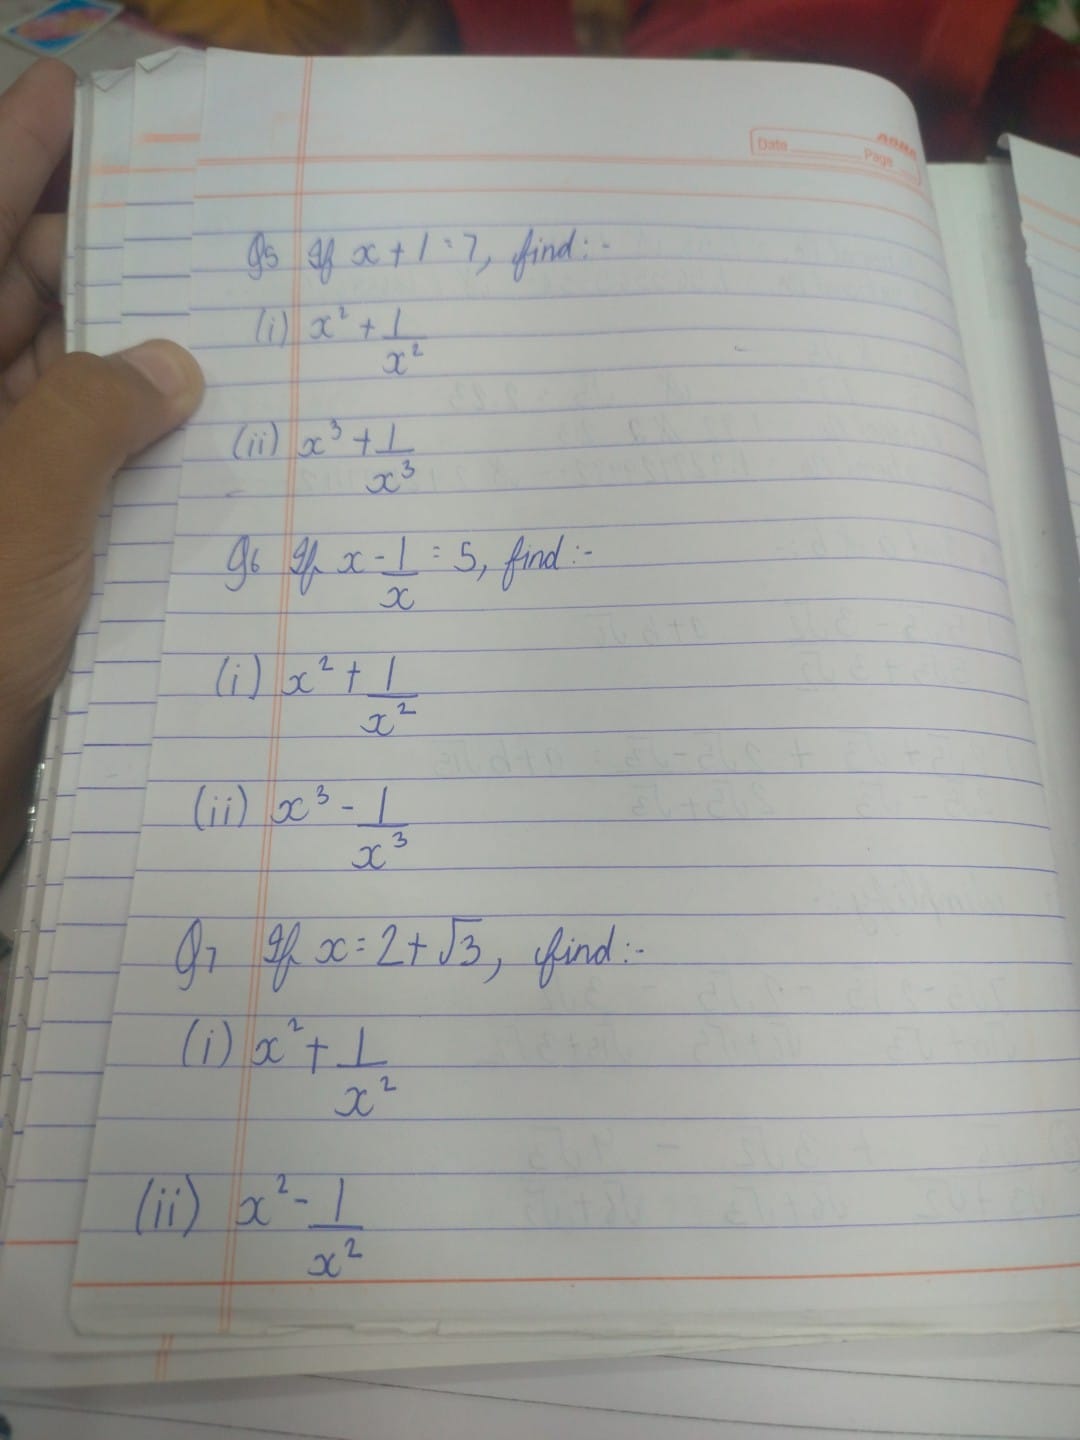 Date Page
Q5 If x + 1 = 7, find:-
(i) x² + 1/x²
(ii) x³ + 1/x³
Q6 If x - 1/x = 5, find:-
(i) x² + 1/x²
(ii) x³ - 1/x³
Q7 If x = 2 + √3, find:-
(i) x² + 1/x²
(ii) x² - 1/x²